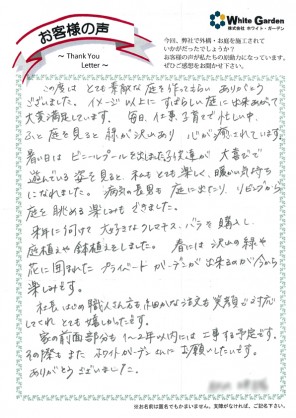 お客様の声
〜 Thank You
Letter 〜
White Garden
株式会社 ホワイト・ガーデン
今回、弊社で外構・お庭を施工されて
いかがだったでしょうか？
お客様の声が私たちの励動力になっています。
ぜひご感想をお聞かせ下さい。
この度は とても素敵な 庭を作ってもらい ありがとう
ございました。イメージ以上に すばらしい庭に 出来あがって
大変満足しています。 毎日、仕事、子育てで忙しい中、
ふと 庭を見ると 緑が沢山あり 心が癒されています。
暑い日は ビニールプールを出しました子供達が 大喜びで
遊んでいる 姿を見ると、私もとても楽しく、暖かい気持ち
になれました。 病気の長男も 庭に出たり、リビングから
庭を眺める楽しみもできました。
来年に向けて 大好きなクレマチス、バラを購入し、
庭植えや 鉢植えをしました。 春には 沢山の緑や
花に囲まれた プライベートガーデンが出来るのが今から
楽しみです。
社長はじめ 職人さん方も細かな注文も笑顔で対応
してくれ とても嬉しかったです。
家の前面部分も 1〜2年以内には 工事する予定です。
その際も また ホワイトガーデンさんに お願いしたいです。
ありがとうございました。
※お名前は匿名でもかまいません。ご感想だけでもかまいませんので、ご記名下さい。